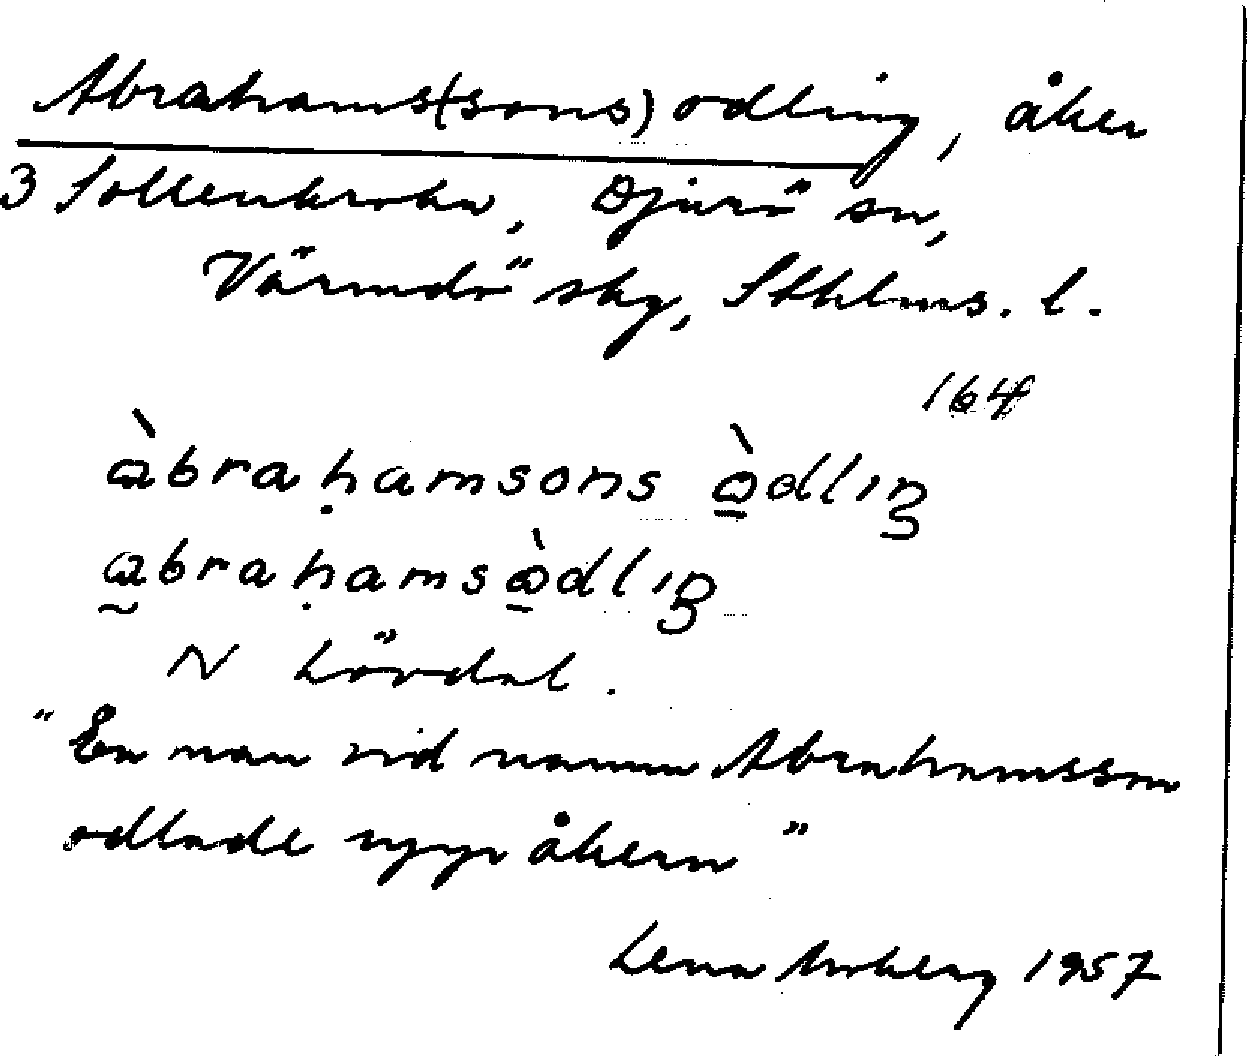 Abrahams(sons)odling, åker
3 Sollenkroka, Djurö sn,
Värmdö skg, Sthlms. l.
164
àbraḥamsons òdlıŋ
a̰braḥamsòdlıŋ
N Lövdal.
"En man vid namn Abrahamsson
odlade upp åkern"
Lena Moberg 1957